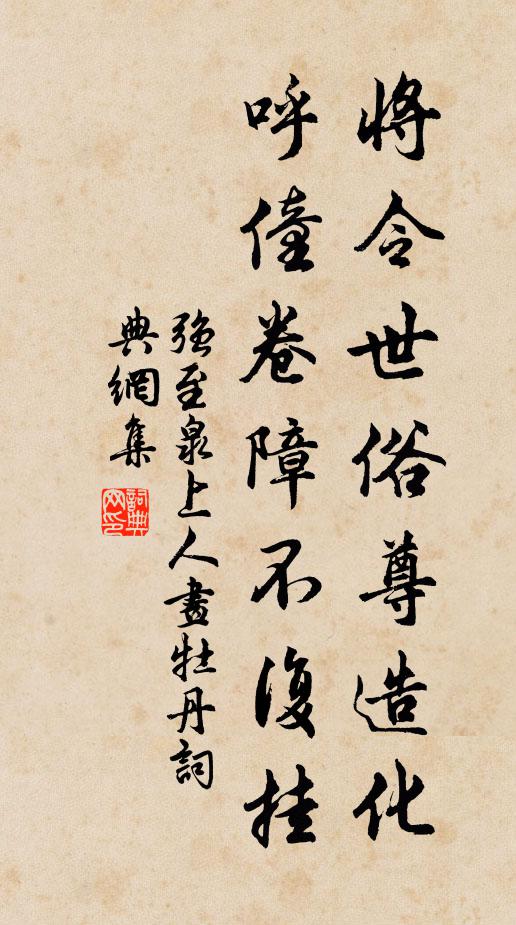 將令世俗尊造化
呼僮卷障不復挂
強至泉上人畫牡丹詞
典網集
詞典網印